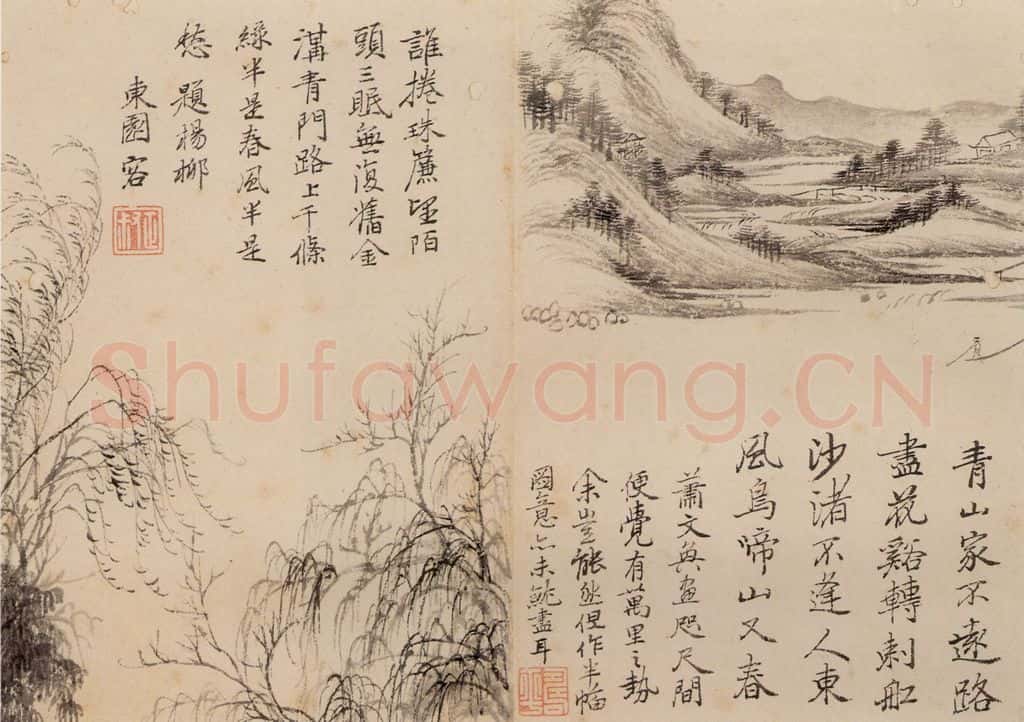 青山家不遠路
盡花谿轉刺船
沙渚不逢人東
風烏啼山又春
蕭文奐畫咫尺間
便覺有萬里之勢
余豈能然但作半幅
圖意亦未能盡耳
誰捲珠簾望陌
頭三眠無復舊金
溝青門路上千條
綠半是春風半是
愁 題楊柳
東園客
正叔
Shufawang.CN